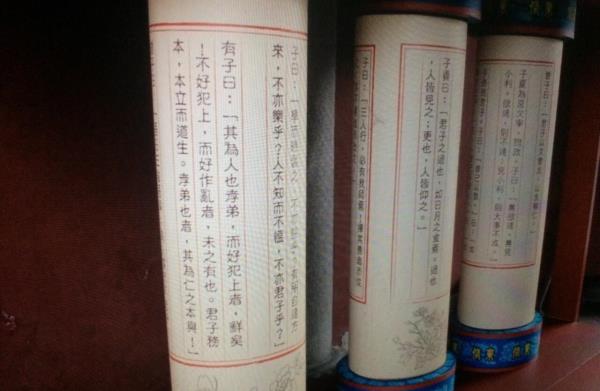 子曰：「學而時習之，不亦說乎？有朋自遠方
來，不亦樂乎？人不知而不慍，不亦君子乎？」
有子曰：「其為人也孝弟，而好犯上者，鮮矣
！不好犯上，而好作亂者，未之有也。君子務
本，本立而道生。孝弟也者，其為仁之本與！」
子貢曰：「君子之過也，如日月之食焉。過也
，人皆見之；更也，人皆仰之。」
子曰：「三人行，必有我師焉！擇其善者而從
曾子曰：「君子以文會友，以友輔仁。」
子夏為莒父宰，問政。子曰：「無欲速，無見
小利。欲速，則不達；見小利，則大事不成。」